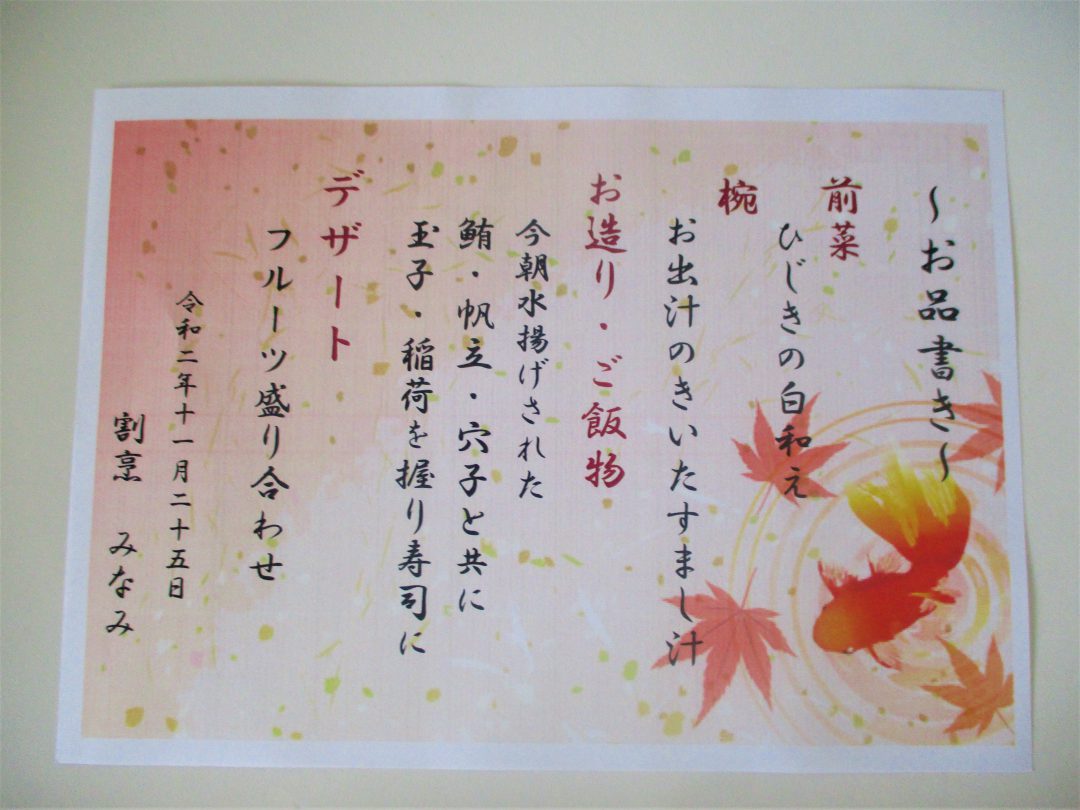 ～お品書き～
前菜
ひじきの白和え
椀
お出汁のきいたすまし汁
お造り・ご飯物
今朝水揚げされた
鮪・帆立・穴子と共に
玉子・稲荷を握り寿司に
デザート
フルーツ盛り合わせ
令和二年十一月二十五日
割烹　みなみ